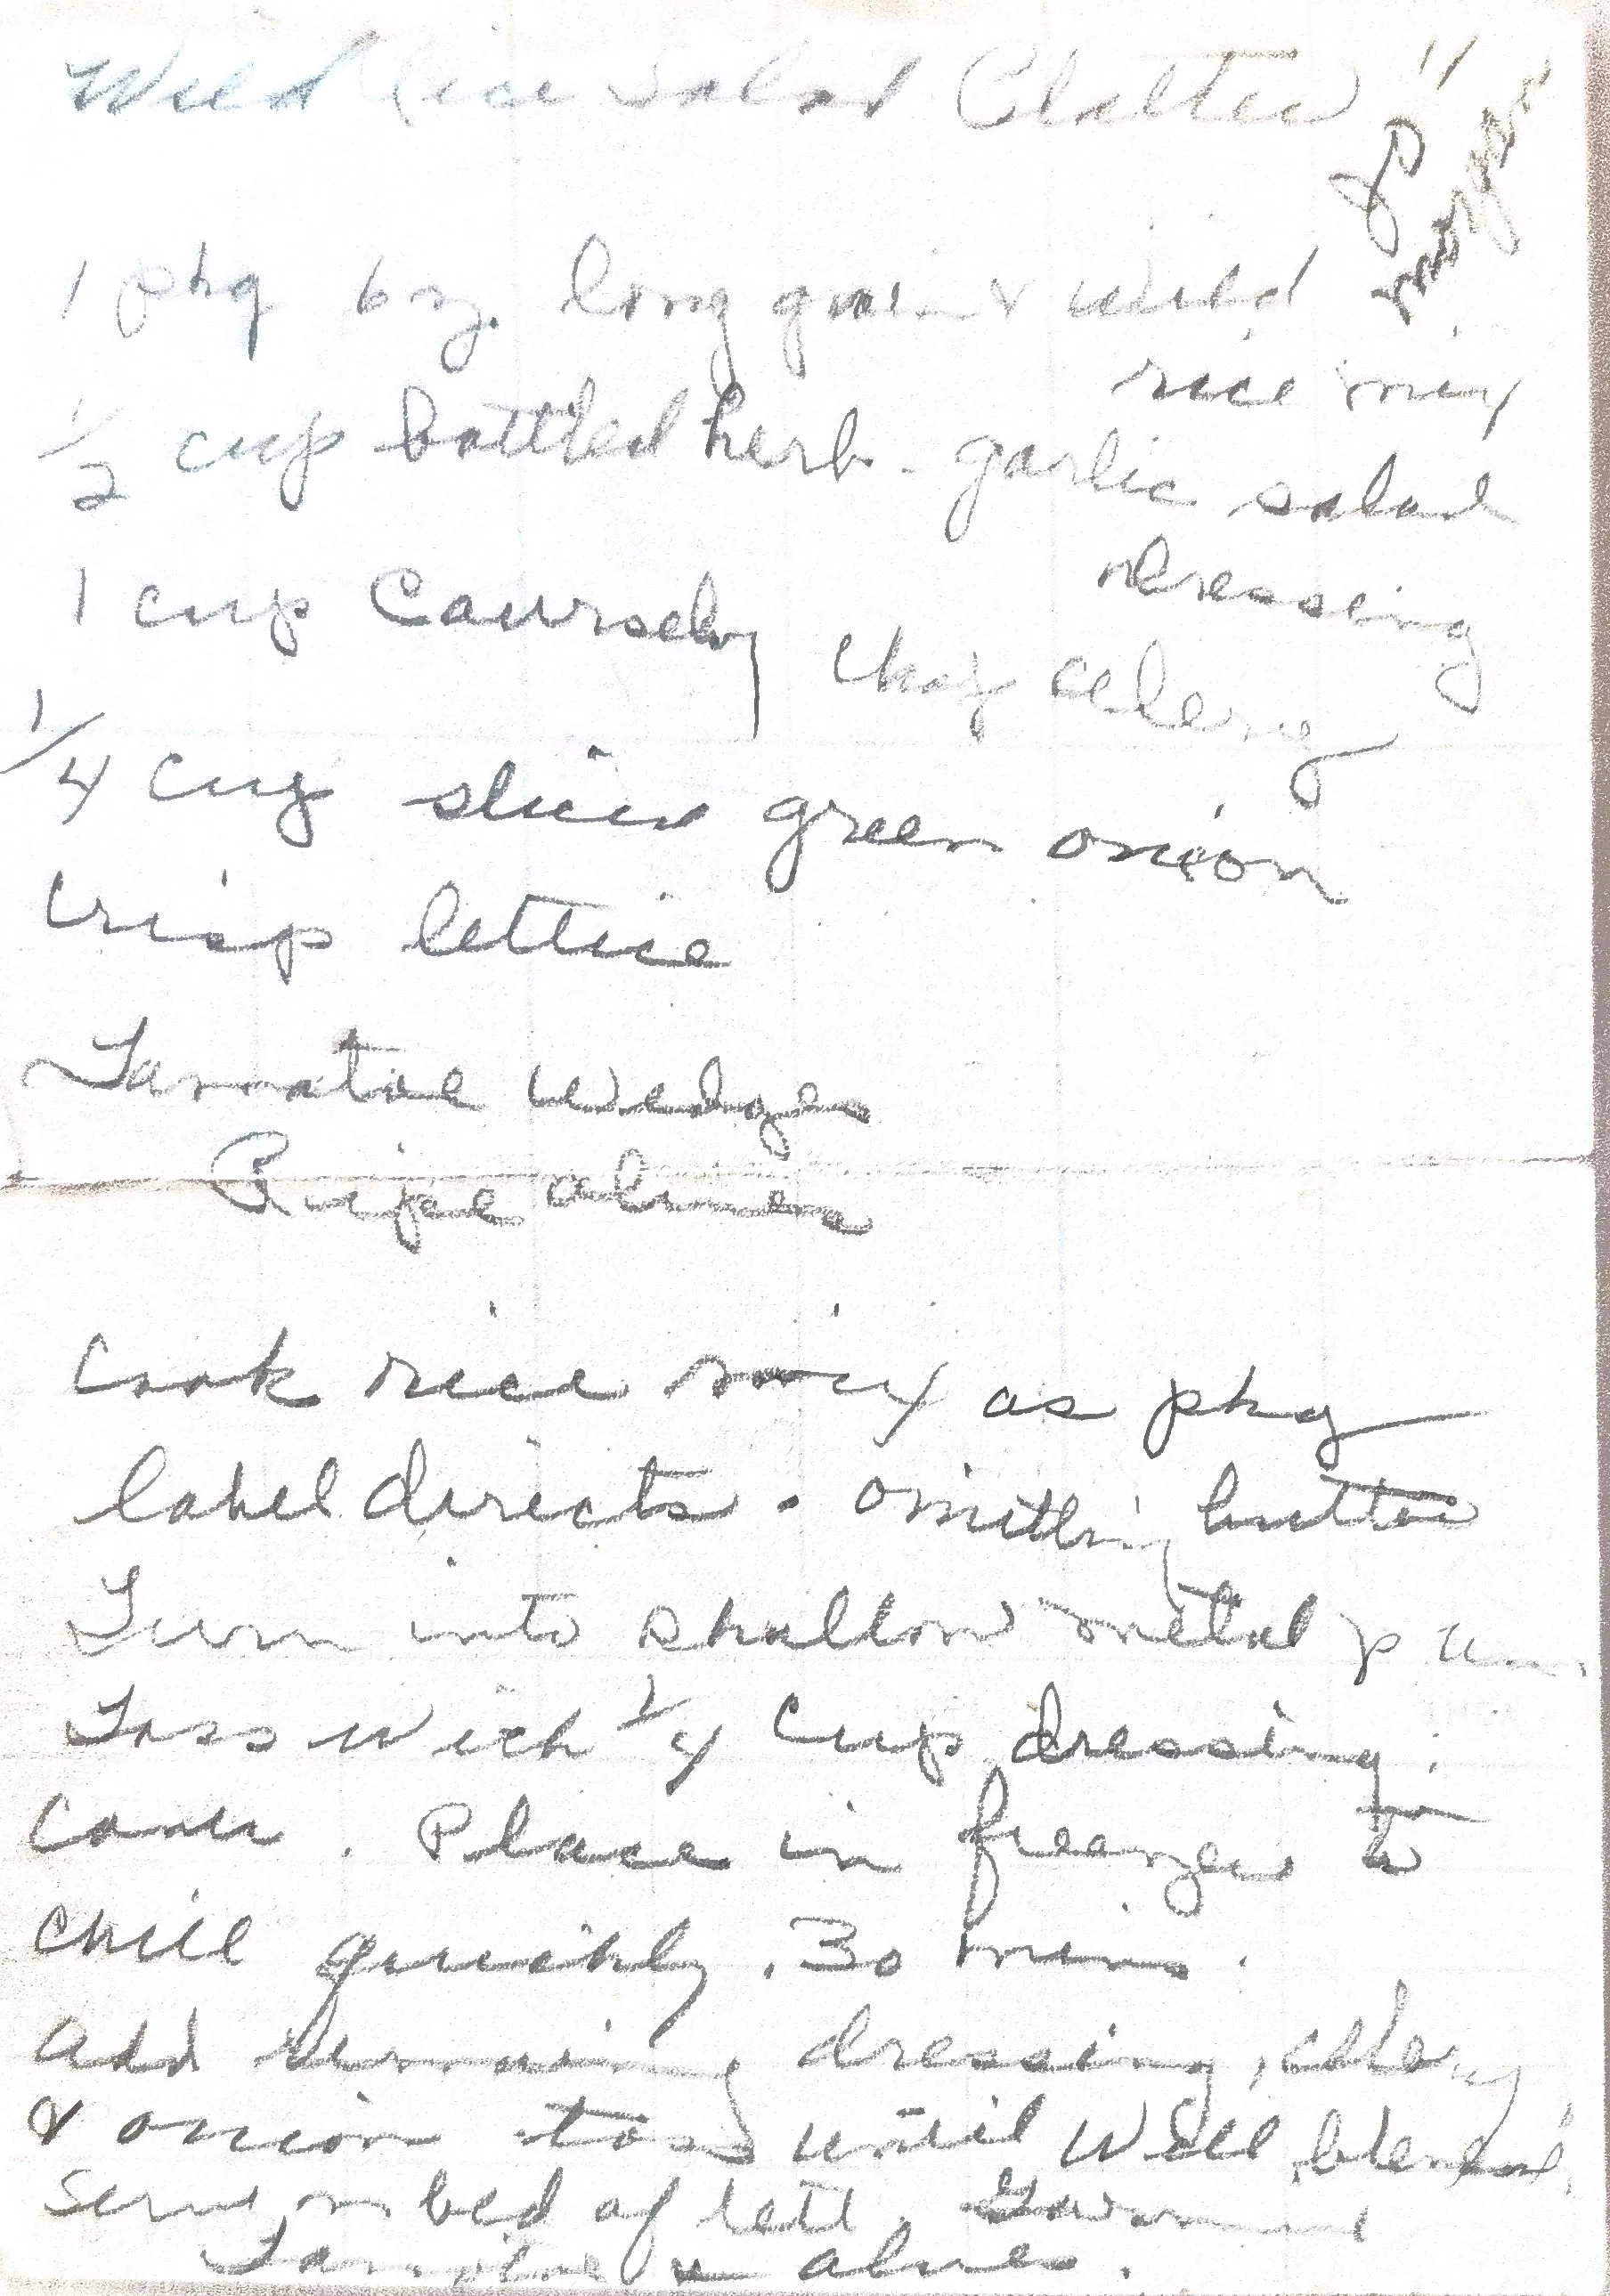 Wild Rice Salad Platter
1 pkg 6 oz. long grain & wild
rice mix
1/2 cup bottled herb - garlic salad
dressing
1 cup Coursely chop celery
1/4 cup sliced green onion
Crisp lettice
Tomatoe wedges
Ripe olives
Cook rice mix as pkg
label directs. omitting butter
Turn into shallow metal pan.
Toss with 1/4 cup dressing.
Cover. Place in freezer to
chill quickly. 30 mins.
add remaining dressing, celery
& onion toss until well blended.
Serve on bed of lett. Garnish
Tomatoe & olives.